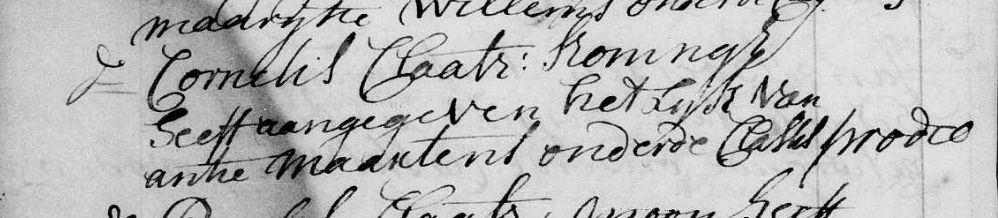 maarytie Willems onder
Cornelis Claatz: Koningh
heeft aangegeven het Lijk van
antie Maartens onder de Classis prodeo
Claatz: heeft